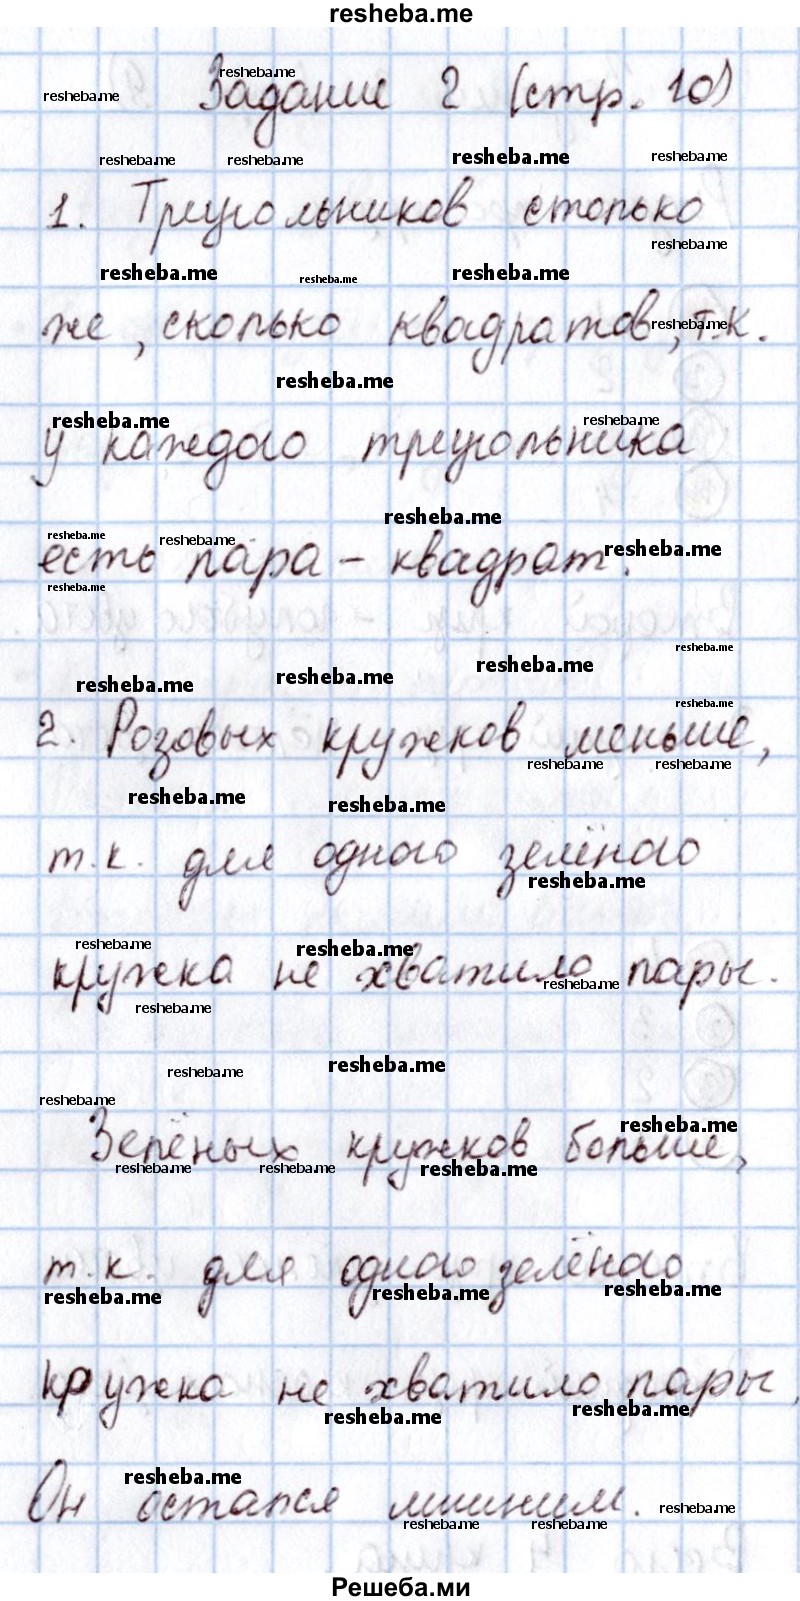 resheba.me
Задание 2 (стр. 10)
1. Треугольников столько
же, сколько квадратов, т.к.
у каждого треугольника
есть пара - квадрат.
2. Розовых кружков меньше,
т.к. для одного зелёного
кружка не хватило пары.
Зелёных кружков больше,
т.к. для одного зелёного
кружка не хватило пары,
Он остался лишним.
Решеба.ми